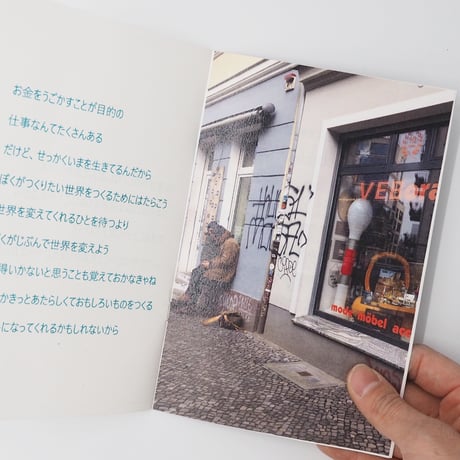 お金をうごかすことが目的の
仕事なんてたくさんある
だけど、せっかくいまを生きてるんだから
ぼくがつくりたい世界をつくるためにはたらこう
世界を変えてくれるひとを待つより
くがじぶんで世界を変えよう
得いかないと思うことも覚えておかなきゃね
かきっとあたらしくておもしろいものをつくる
になってくれるかもしれないから
VEB
mode möbel acc